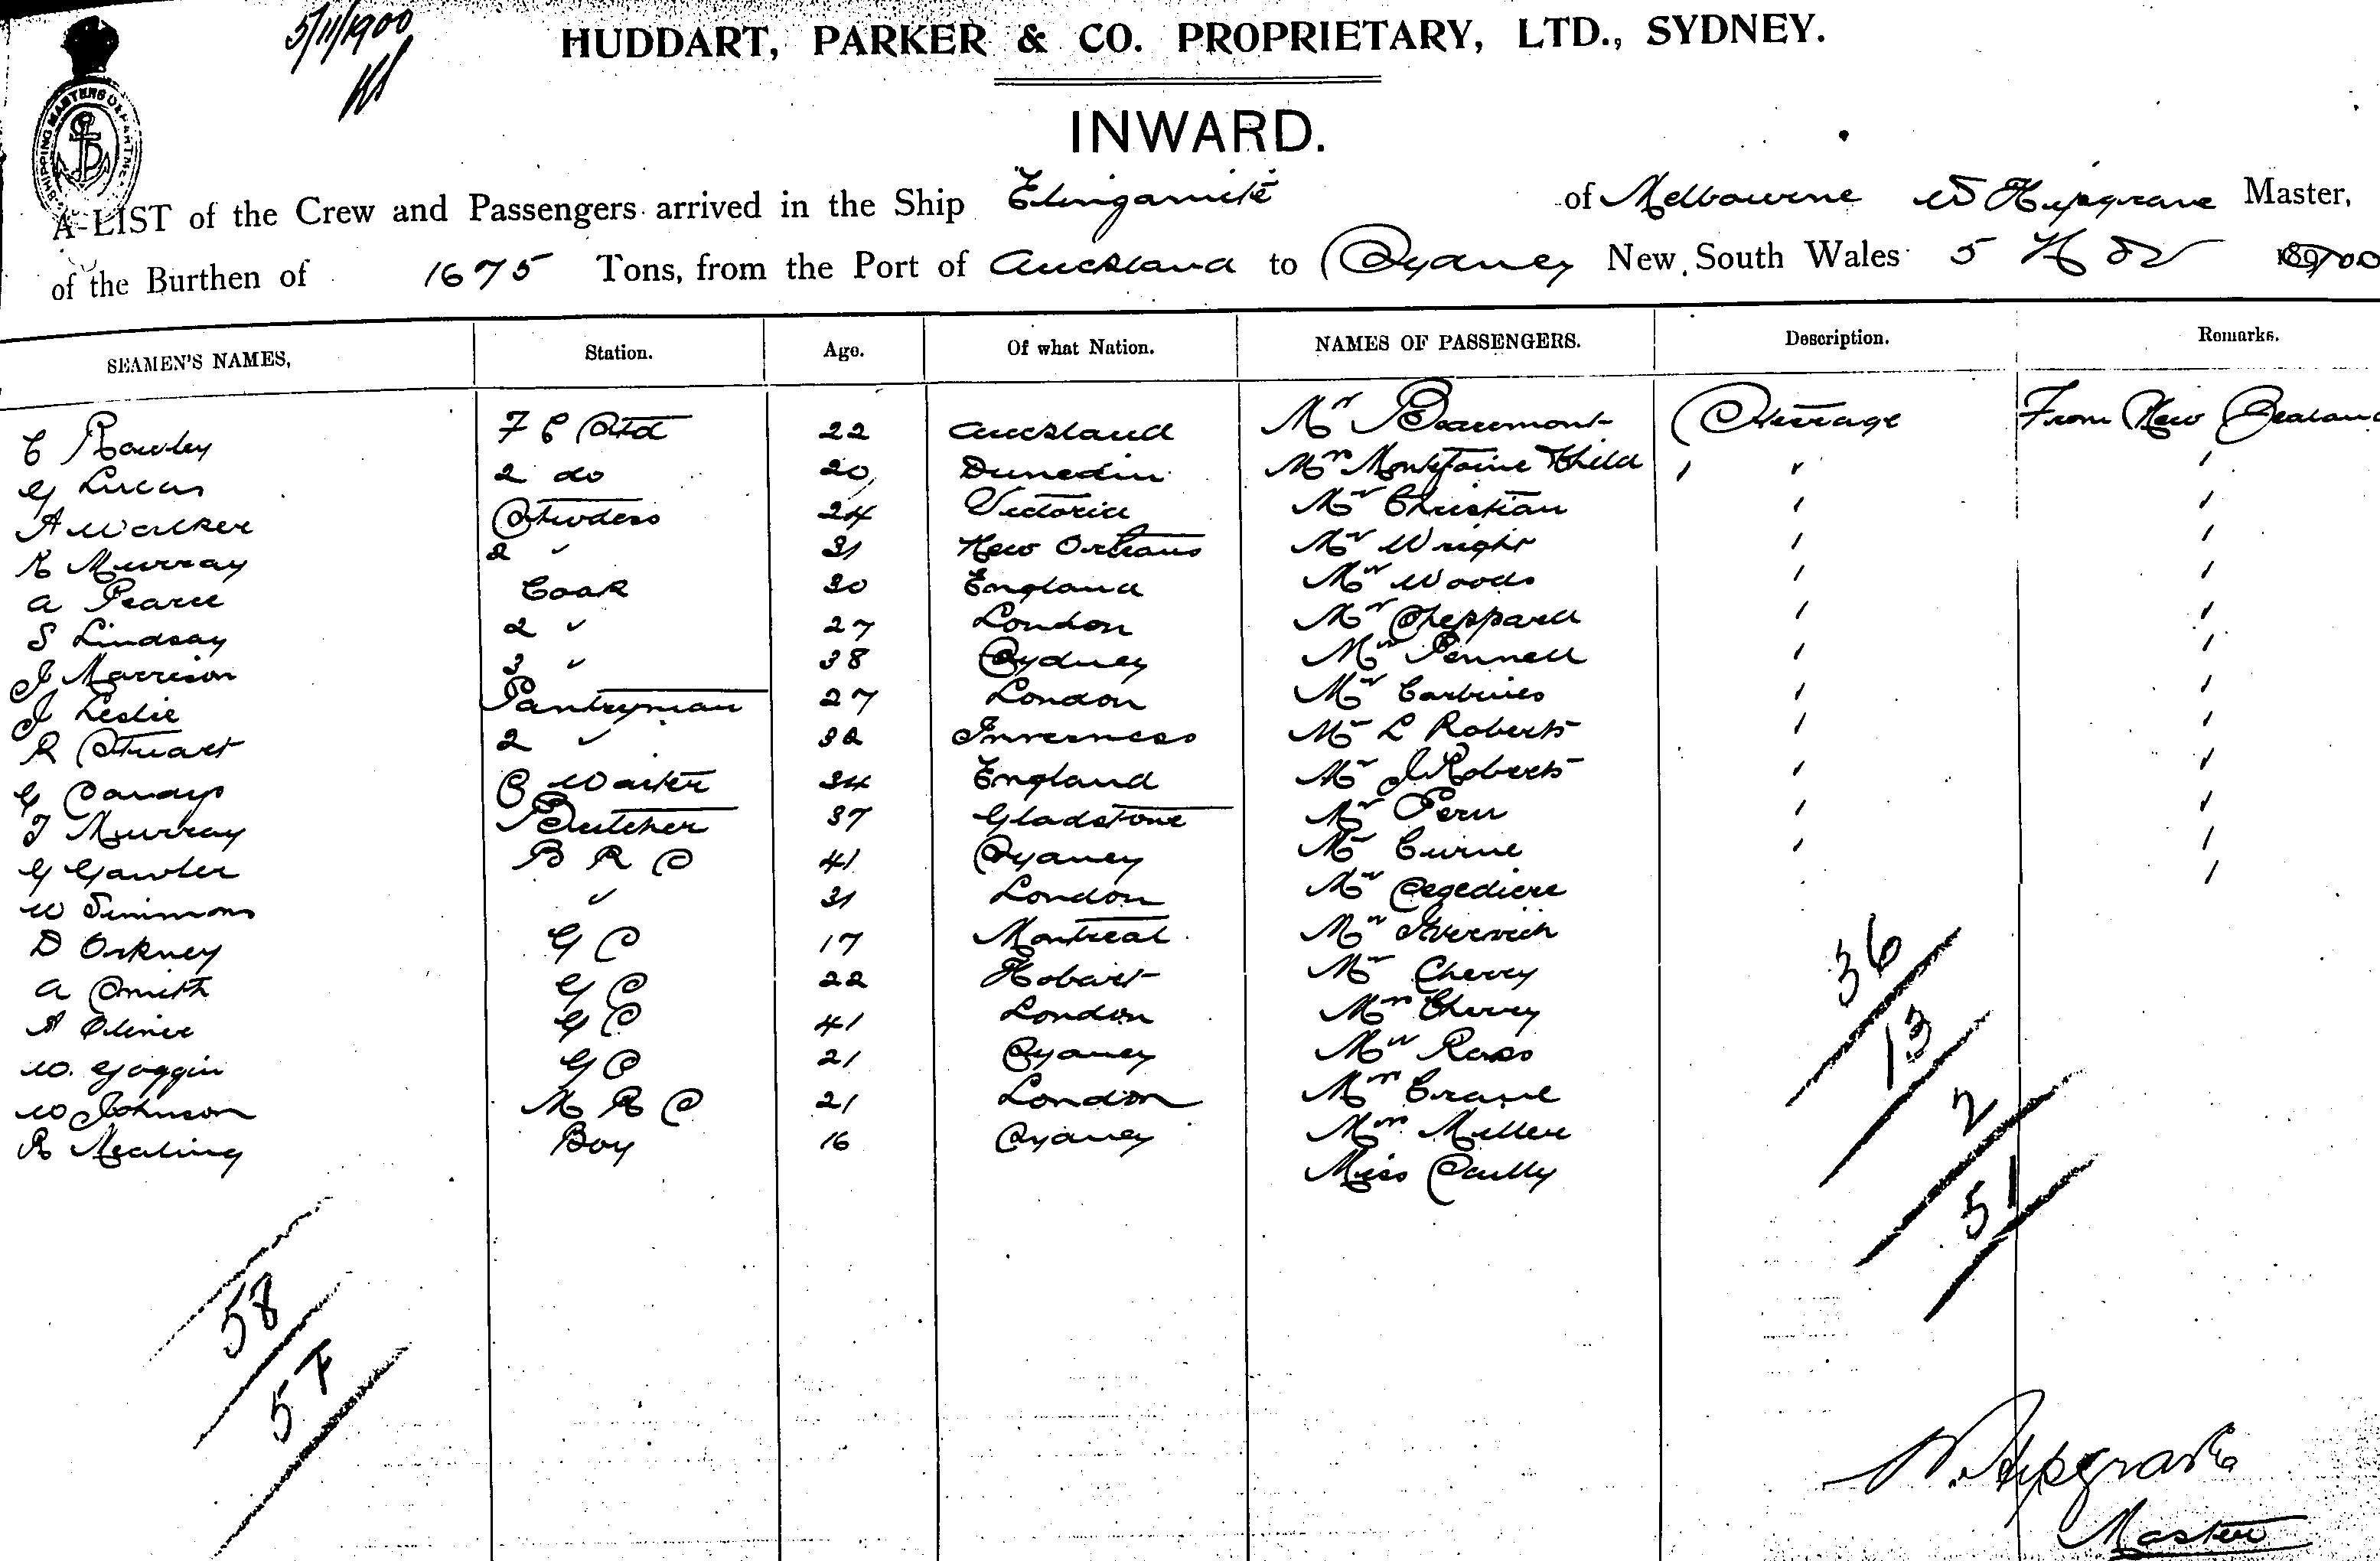 5/11/1900
HUDDART, PARKER & CO. PROPRIETARY, LTD., SYDNEY.
INWARD.
SHIPPING MASTERS DEPARTMENT
A LIST of the Crew and Passengers arrived in the Ship Elingamite of Melbourne W Hepgrave Master,
of the Burthen of 1675 Tons, from the Port of Auckland to Sydney New South Wales 5 Nov 1900
SEAMEN'S NAMES, Station. Age. Of what Nation. NAMES OF PASSENGERS. Description. Remarks.
C Rowley F C Std 22 Auckland Mr Beaumont Steerage From New Zealand
G Lucas 2 do 20 Dunedin Mrs Child " "
A Walker Stwdess 24 Victoria Mr Christian " "
R Murray 2 " 31 New Orleans Mr Wright " "
A Pearce Cook 30 England Mr Woods " "
S Lindsay 2 " 27 London Mr Sheppard " "
J Marrison 3 " 38 Sydney Mr Pennell " "
J Leslie Pantryman 27 London Mr Carbines " "
R Stuart 2 " 32 Inverness Mr L Roberts " "
G S Waiter 34 England Mr J Roberts " "
T Murray Butcher 37 Gladstone Mr Peru " "
G Gawler B R S 41 Sydney Mr Curne " "
W Simmons " 31 London Mr "
D Orkney G S 17 Montreal Mr
A Smith G S 22 Hobart Mr Cherry
A G S 41 London Mrs Cherry
W. Goggin G S 21 Sydney Mr Ross
W Johnson M R S 21 London Mrs
R Nealing Boy 16 Sydney Mrs Miller
Miss Scully
36
13
2
51
58
57
W. Hepgrave
Master